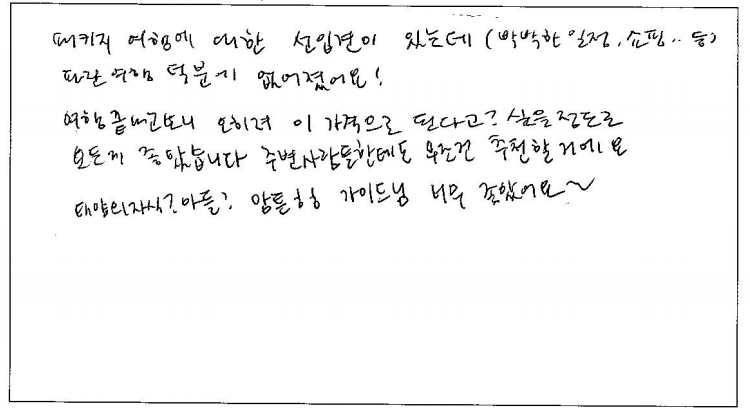 패키지 여행에 대한 선입견이 있는데 (빡빡한 일정, 쇼핑.. 등)
파란여행 덕분에 없어졌어요!
여행 끝내고보니 오히려 이 가격으로 된다고? 싶을정도로
모든게 좋았습니다 주변사람들한테도 무조건 추천할거에요
태양의자식?아들? 암튼ㅎㅎ 가이드님 너무 좋았어요~